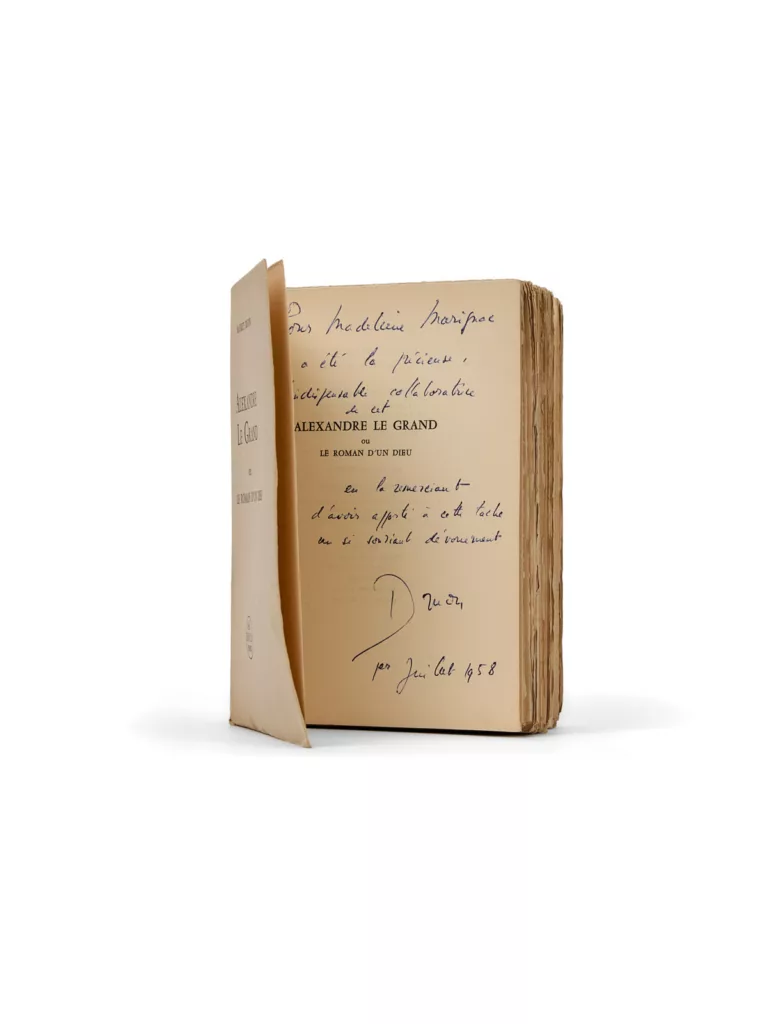 ALEXANDRE
LE GRAND
OU
LE ROMAN D'UN DIEU
Pour Madeleine Marignac
a été la précieuse,
indispensable collaboratrice
de cet
ALEXANDRE LE GRAND
ou
LE ROMAN D'UN DIEU
en la remerciant
d'avoir apporté à cette tache
un si souriant dévouement
Druon
1er Juillet 1958